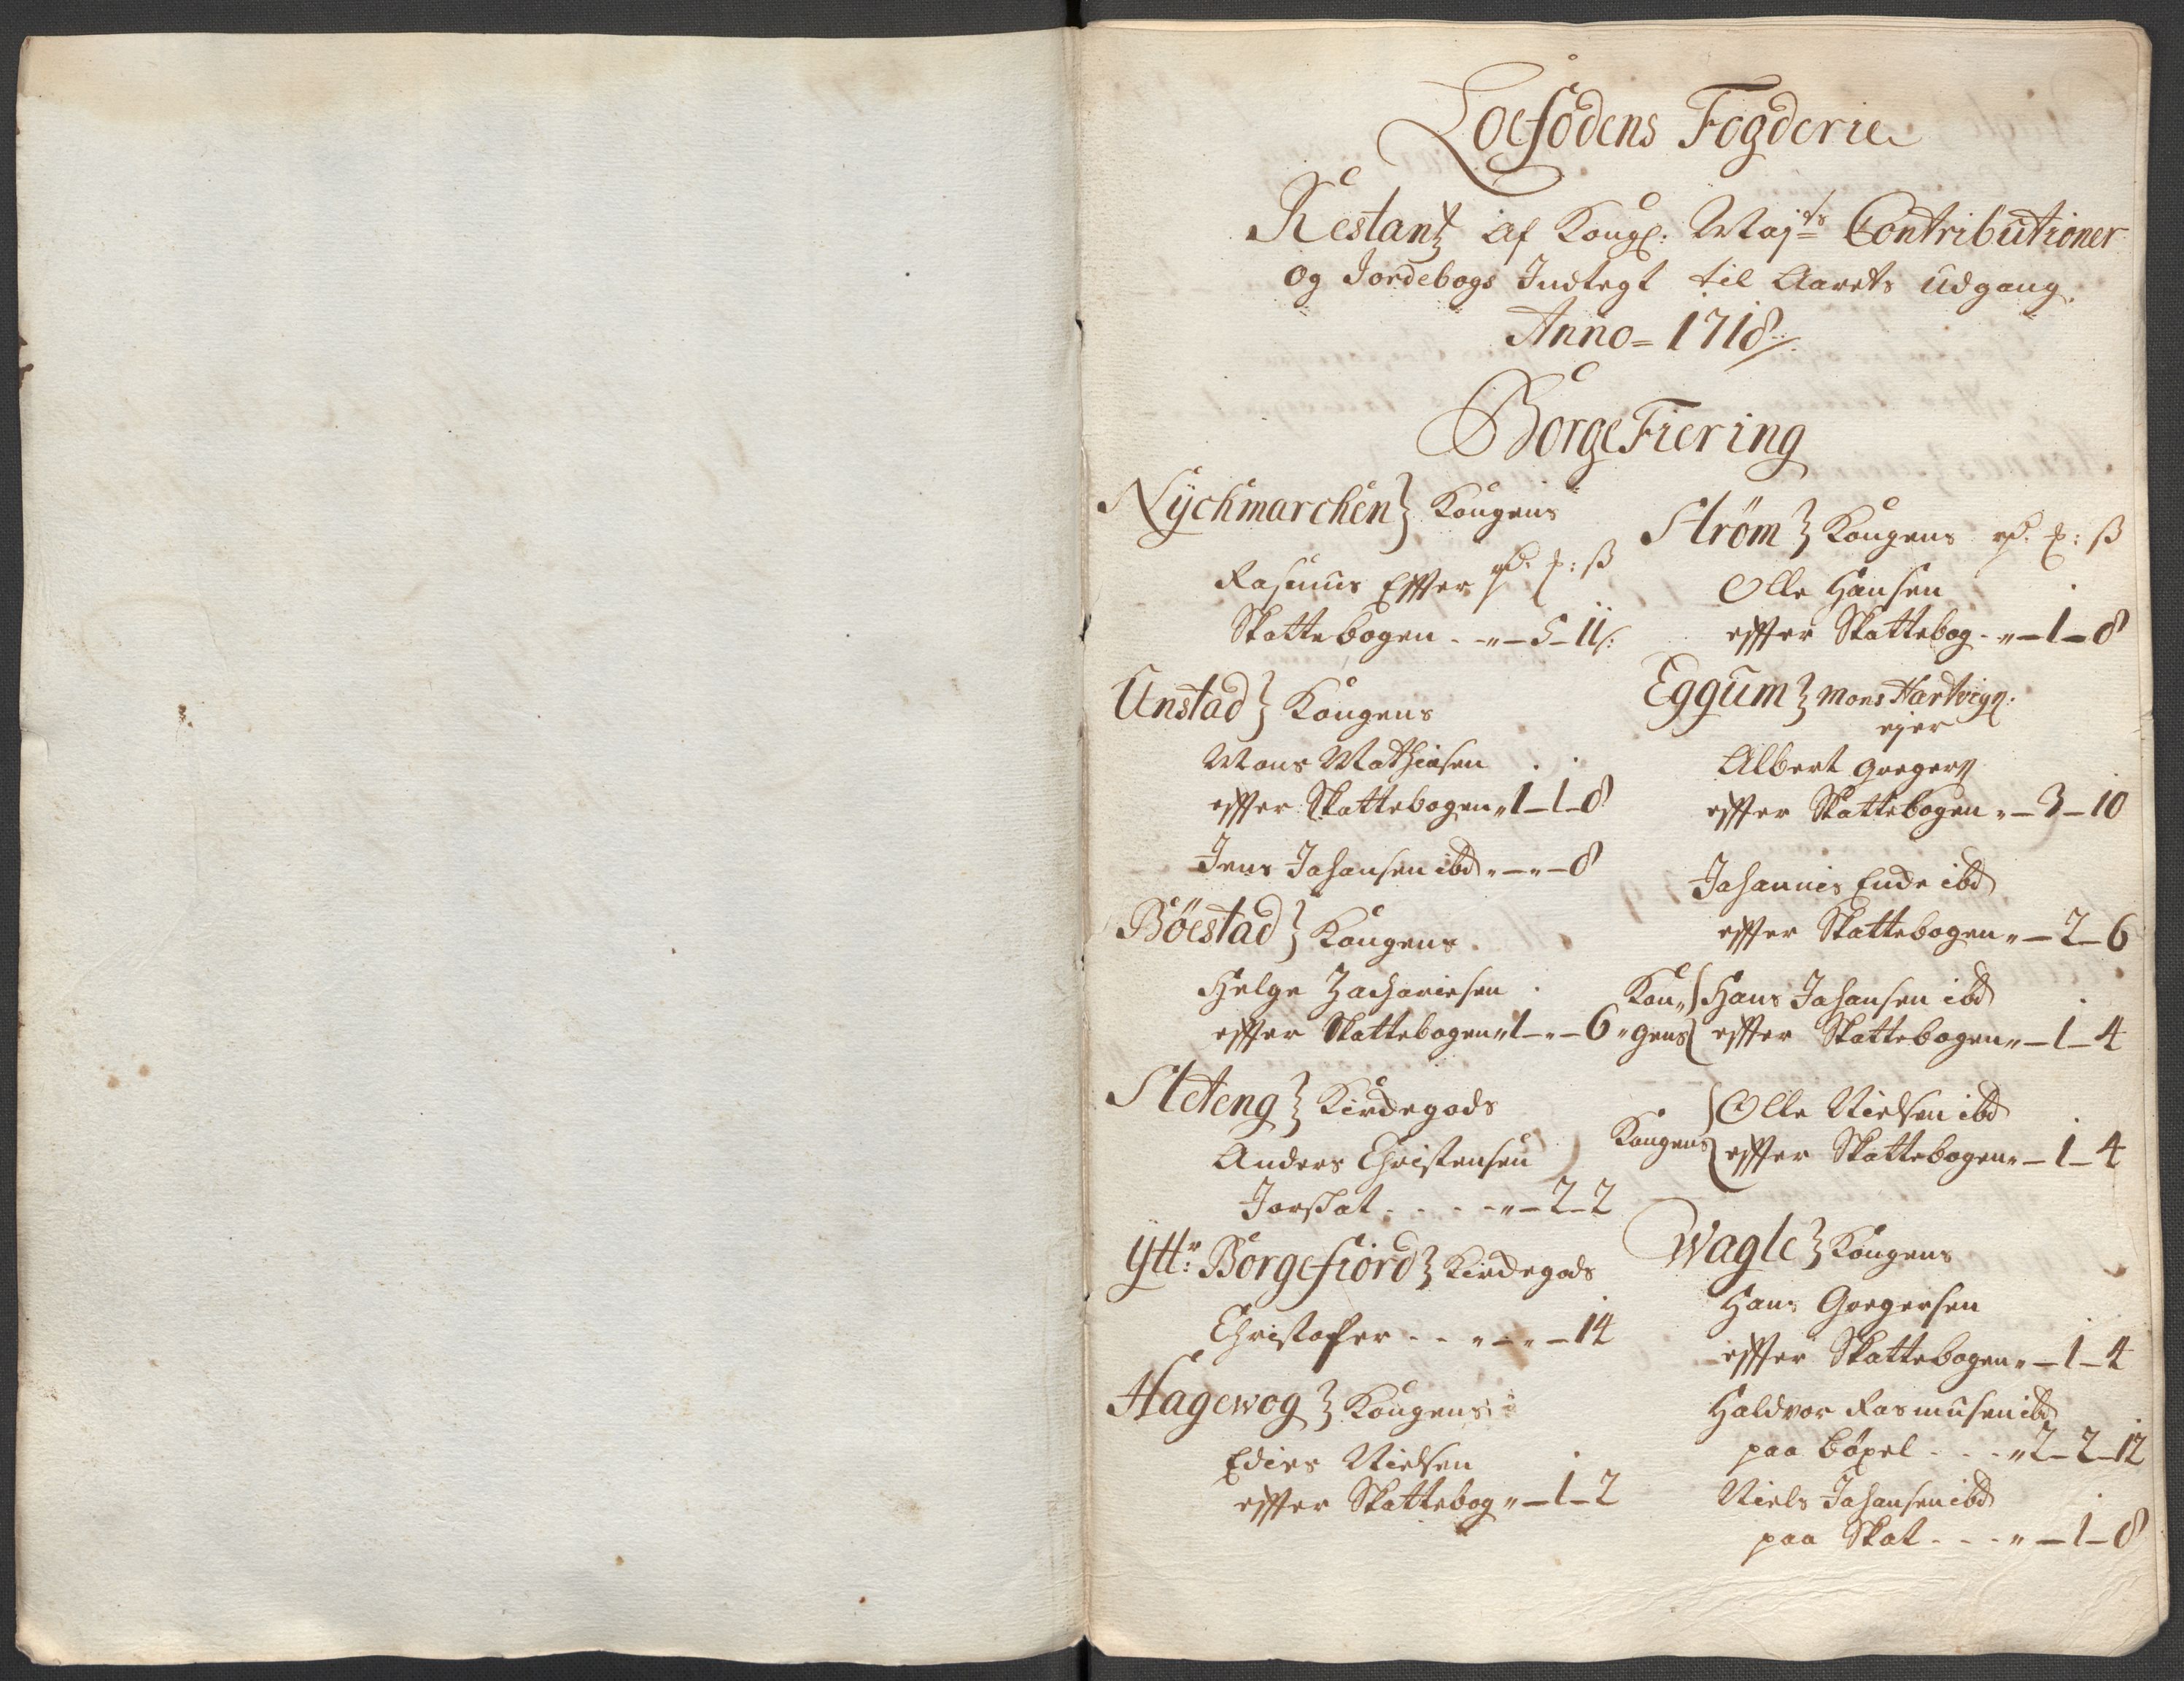 Loefodens Fogderie
Restantz af Kongl: Majts Contributioner
og Jordebogs Indtegt til Aarets Udgang
Anno = 1718
Borge Fiering
Nÿchmarchen} Kongens
Rasmus efter rd. £: ß
Skattebogen - - „ - 5 - 11 ß:
Unstad} Kongens
Mons Mathiesen
efter Skattebogen „ 1 - 1 - 8
Jens Johansen ibd „ - „ - 8
Böestad} Kongens
Helge Zachariesen
efter Skattebogen „ 1 - „ - 6
Steteng} Kirchegods
Anders Christensen
Forskat - - - - „ - 2 - 2
Ÿttr: Borgefiord} Kirchegods
Christofer - - „ - „ - 14
Hagewog} Kongens
Edies Nielsen
efter Skattebog „ - 1 - 2
Ström} Kongens rd. £: ß
Olle Hansen
efter Skattebog - „ - 1 - 8
Eggum} Mons Hartvigs:
ejer
Albert Gregers
efter Skattebogen „ - 3 - 10
Johannes Ende ibd
efter Skattebogen „ - 2 - 6
Kon„ { Hans Johansen ibd
„gens { efter Skattebogen „ - 1 - 4
{ Olle Nielsen ibd
Kongens { efter Skattebogen „ - 1 - 4
Wagle} Kongens
Hans Gregersen
efter Skattebogen „ - 1 - 4
Haldvor Rasmusen ibd
paa bøxel - - - „ 2 - 2 - 12
Niels Johansen ibd
paa Skat - - - „ - 1 - 8